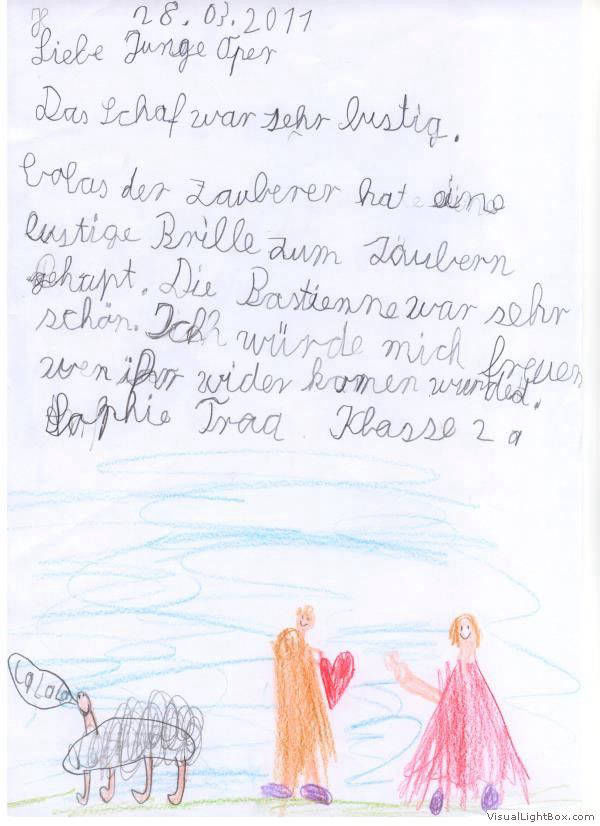 28.03.2011
Liebe Junge Oper
Das Schaf war sehr lustig.
Colas der Zauberer hat eine
lustige Brille zum Zaubern
gehapt. Die Bastienne war sehr
schön. Ich würde mich freuen
wen ihr wider komen wurdet.
Sophie Trad Klasse 2a
La La La
VisualLightBox.com